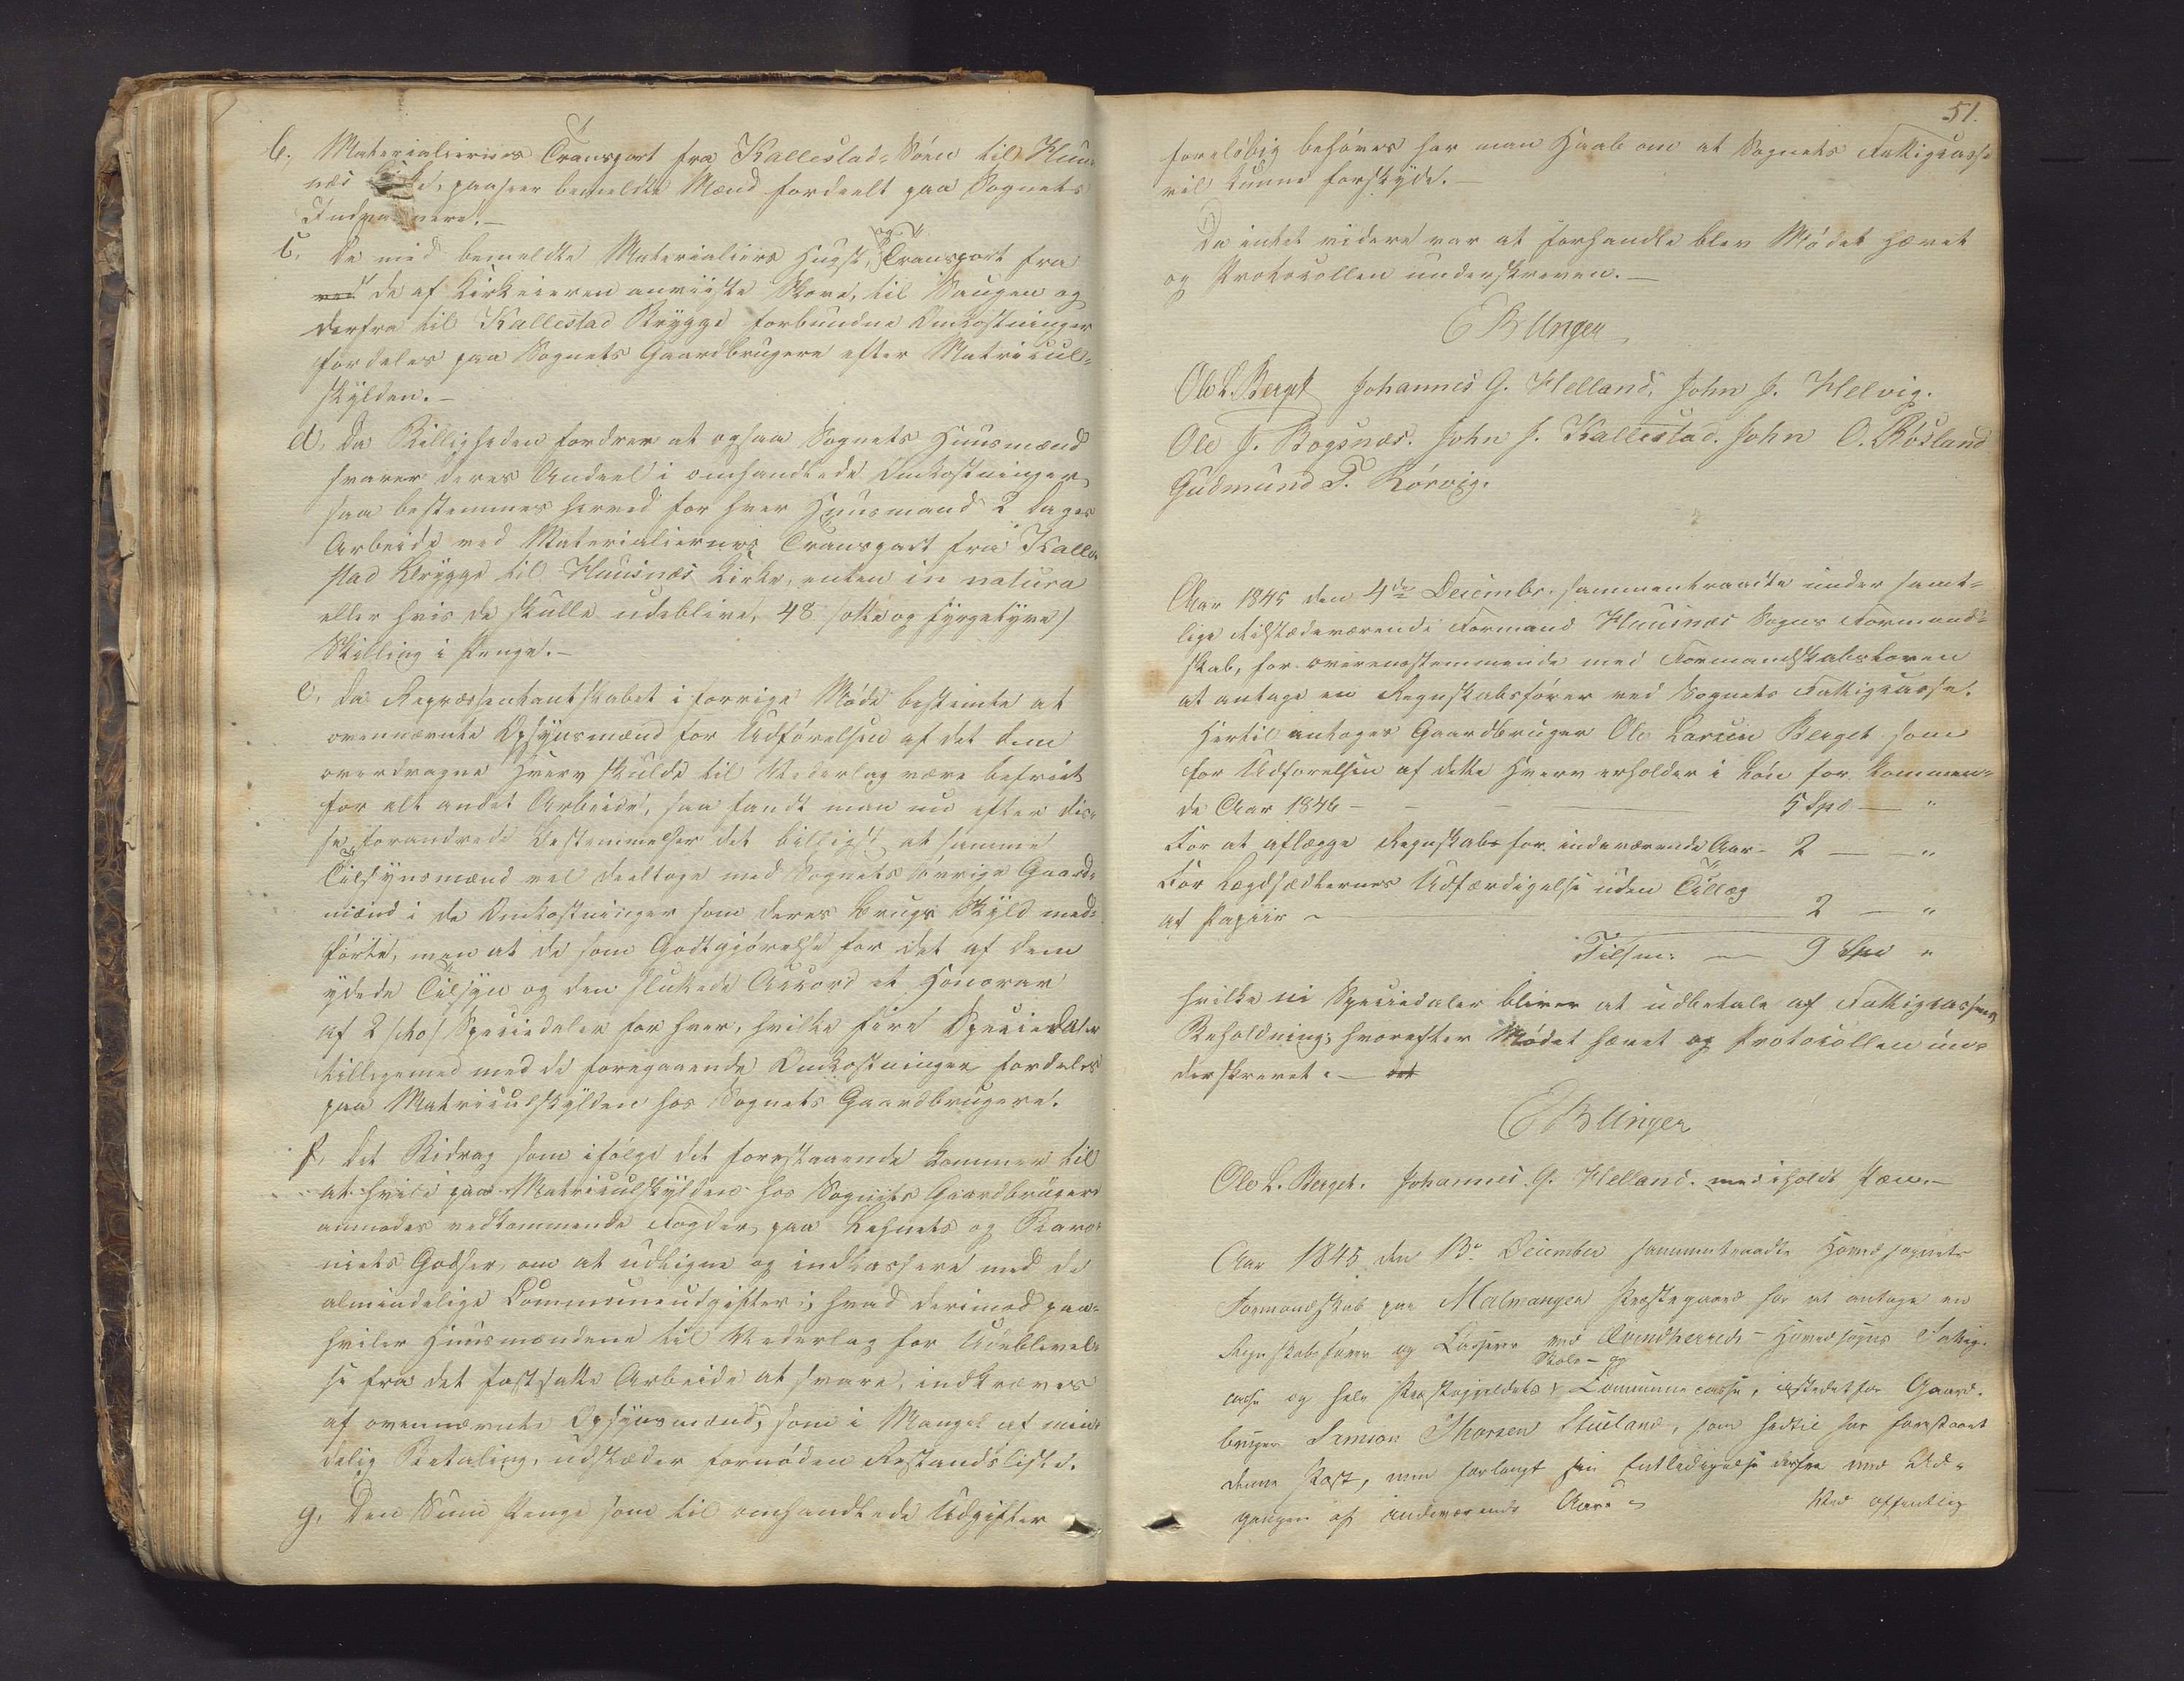 b. Materialiernes Transport fra Kallestad-Söen til Huus-
næs Kirke, paaseer bemeldte Mænd fordeelt paa Sognets
Indvaanere.—
c. De med bemeldte Materialiers Hugst, og Transport fra
ved de af Kirkeieren anviiste Skove, til Saugen og
derfra til Kallestad Brygge forbundne Omkostninger
fordeles paa Sognets Gaardbrugere efter Matricul-
skylden.—
d. Da Billigheden fordrer at ogsaa Sognets Huusmænd
svarer deres Andeel i omhandlede Omkostninger,
saa bestemmes herved for hver Huusmand 2 Dages
Arbeide ved Materialiernes Transport fra Kalle-
stad Brygge til Huusnæs Kirke, enten in natura
eller hvis de skulle udeblive, 48 /otte og fyrgetyve/
Skilling i Penge.—
e. Da Repræsentantskabet i forrige Møde bestemte at
ovennævnte Opsynsmænd for Udförelsen af det dem
overdragne Hverv skulde til Vederlag være befriet
for alt andet Arbeide, saa fandt man nu efter dis-
se forandrede Bestemmelser det billigst at samme
Tilsynsmænd vel deeltage med Sognets övrige Gaard-
mænd i de Omkostninger som deres Brugs Skyld med-
förte, men at de som Godtgjörelse for det af dem
ydede Tilsyn og den sluttede Accord et Honorar
af 2 /to/ Speciedaler for hver, hvilke fire Speciedaler
tilligemed med de foregaaende Omkostninger fordeles
paa Matriculskylden hos Sognets Gaardbrugere.
f. Det Bidrag som ifölge det forestaaende kommer til
at hvile paa Matriculskylden hos Sognets Gaardbrugere
anmodes vedkommende Fogder, paa Lehnets og Baro-
niets Godser, om at udligne og indkassere med de
almindelige Communeudgifter; hvad derimod paa-
hviler Huusmændene til Vederlag for Udeblivel-
se fra det fastsatte Arbeide at svare, indkræves
af ovennævnte Opsynsmænd, som i Mangel af min-
delig Betaling, udstæder fornöden Restandsliste.
g. Den Sum Penge som til omhandlede Udgifter
51.
forelöbig behöves har man Haab om at Sognets Fattigcasse
vil kunne forskyde.—
Da intet videre var at forhandle blev Mödet hævet
og Protocollen underskreven.—
E B Unger
Ole L. Berget Johannes G. Helland, John J. Helvig.
Ole J. Bogsnæs. John J. Kallestad. John O. Røsland
Gudmund T. Rörvig.
Aar 1845 den 4de Decembr. sammentraadte under samt-
lige tilstædeværende Formænd Huusnæs Sogns Formand-
skab, for overensstemmende med Formandskabsloven
at antage en Regnskabsförer ved Sognets Fattigcasse.
Hertil antages Gaardbruger Ole Larsen Berget som
for Udförelsen af dette Hverv erholder i Lön for kommen-
de Aar 1846 — — — 5 Spd — "
For at aflægge Regnskab for indeværende Aar — 2 — — "
For Lægdsædlernes Udfærdigelse uden Tillæg
af Papiir — 2 — "
Tilsm: — 9 Spd "
hvilke ni Speciedaler bliver at udbetale af Fattigcassens
Beholdning; hvorefter Mödet hævet og Protocollen un-
derskrevet.—
E B Unger
Ole L. Berget. Johannes G. Helland. med iholdt Pen.—
Aar 1845 den 13de December sammentraadte Hovedsognets
Formandskab paa Malmangen Præstegaard for at antage en
Regnskabsförer og Casserer ved Qvindherreds Hovedsogns Fattig-
Skole- og
casse og hele Præstegjeldets Communecasse, istedetfor Gaard-
bruger Samson Thorsen Stueland, som hidtil har forestaaet
denne Post, men forlangt sin Entledigelse derfra med Ud-
gangen af indeværende Aar. — Ved offentlig